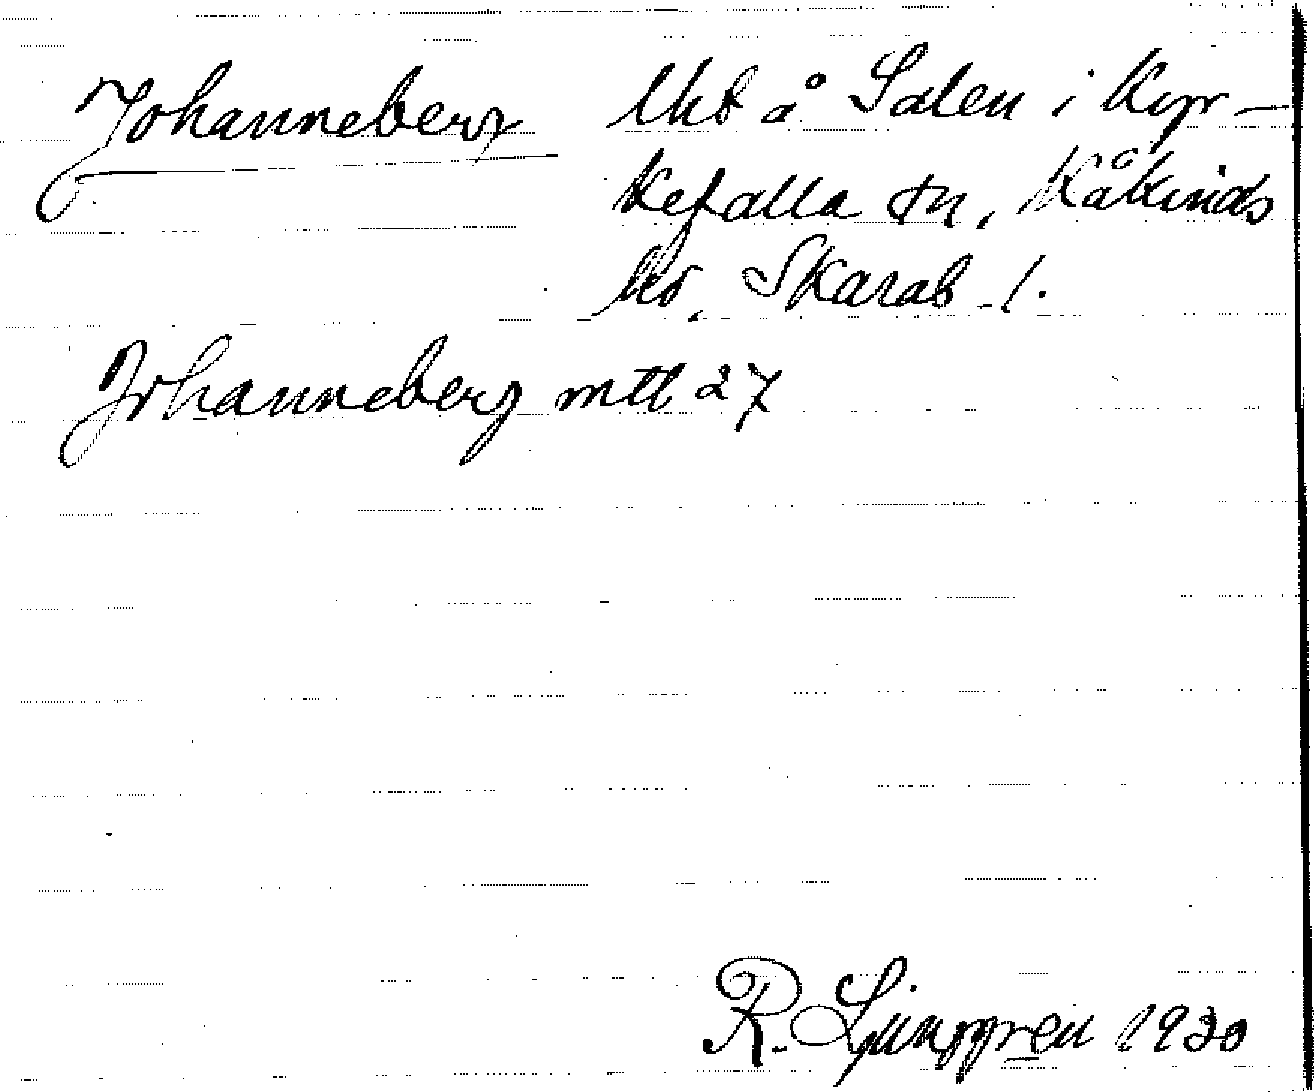 Johanneberg å Salen i Kyr-
kefalla sn, Kåkinds
hd, Skarab. l.
Johanneberg mtl 27
R. Ljunggren 1930